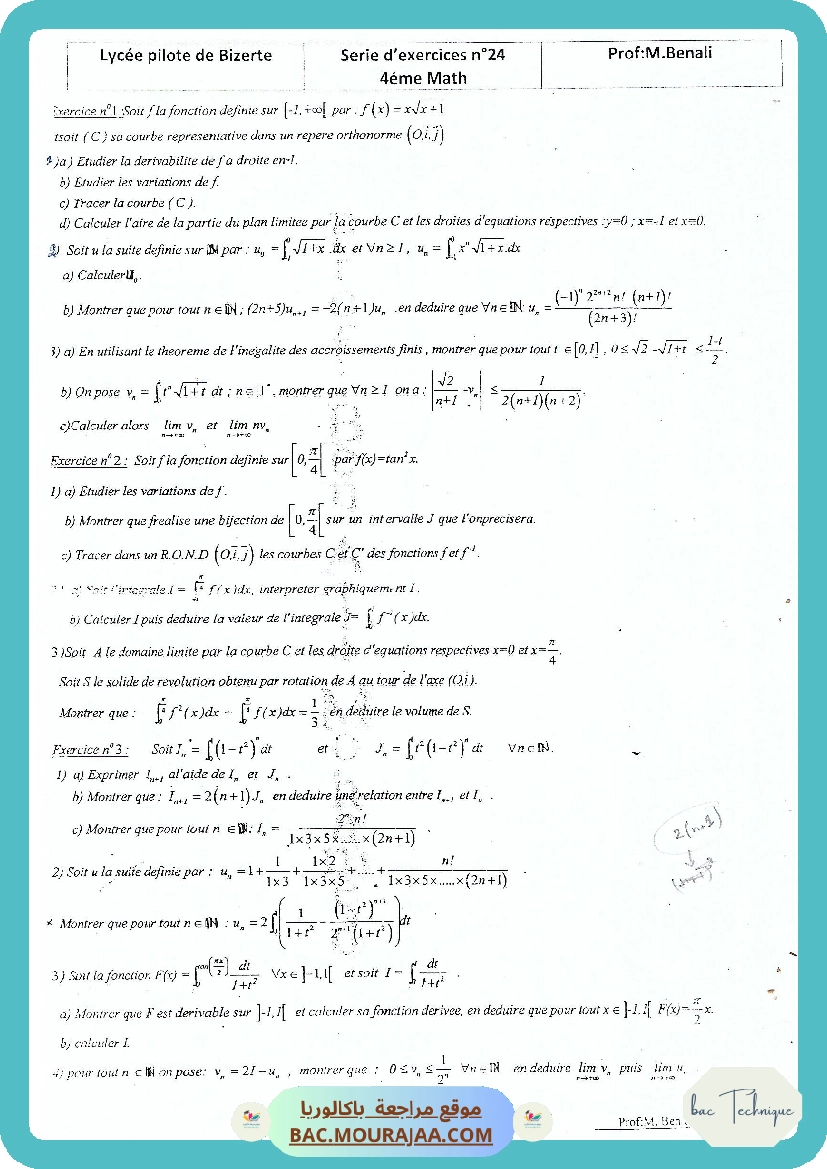 Lycée pilote de Bizerte
Serie d'exercices n°24
4éme Math
Prof:M.Benali
Exercice n°1 :Soit f la fonction definie sur [-1, +∞[ par : f(x) = x√x+1
tsoit ( C ) sa courbe representative dans un repere orthonorme (O,i,j)
)a) Etudier la derivabilite de f a droite en-1.
b) Etudier les variations de f.
c) Tracer la courbe ( C ).
d) Calculer l'aire de la partie du plan limitee par la courbe C et les droites d'equations respectives :y=0 ; x=-1 et x=0.
Soit u la suite definie sur IN par : u₀ = ∫₋₁⁰ √1+x .dx et ∀n ≥ 1 , uₙ = ∫₋₁⁰ xⁿ√1+x.dx
a) Calculer U₀.
b) Montrer que pour tout n ∈ IN ; (2n+5)uₙ₊₁ = -2(n+1)uₙ .en deduire que ∀n ∈ IN: uₙ = (-1)ⁿ 2²ⁿ⁺² n! (n+1)! / (2n+3)!
3) a) En utilisant le theoreme de l'inegalite des accroissements finis , montrer que pour tout t ∈ [0,1] , 0 ≤ √2 -√1+t ≤ 1-t / 2 .
b) On pose vₙ = ∫₀¹ tⁿ√1+t dt ; n ∈ * , montrer que ∀n ≥ 1 on a : |√2 / n+1 - vₙ| ≤ 1 / 2(n+1)(n+2) .
c)Calculer alors lim vₙ n→+∞ et lim nvₙ n→+∞
Exercice n° 2 : Soit f la fonction definie sur [0, π/4[ par f(x)=tan² x.
1) a) Etudier les variations de f .
b) Montrer que f realise une bijection de [0, π/4[ sur un intervalle J que l'onprecisera.
c) Tracer dans un R.O.N.D (O,i,j) les courbes C et C' des fonctions f et f⁻¹ .
Soit l'integrale I = ∫₀^π/4 f(x)dx, interpreter graphiquement I .
b) Calculer I puis deduire la valeur de l'integrale J= ∫₀¹ f⁻¹(x)dx.
3 )Soit A le domaine limite par la courbe C et les droite d'equations respectives x=0 et x= π/4 .
Soit S le solide de revolution obtenu par rotation de A au tour de l'axe (O,i).
Montrer que : ∫₀^π/4 f²(x)dx + ∫₀^π/4 f(x)dx = 1/3 en deduire le volume de S.
Exercice n° 3 : Soit Iₙ = ∫₀¹(1-t²)ⁿ dt et Jₙ = ∫₀¹ t²(1-t²)ⁿ dt ∀n ∈ IN.
1) a) Exprimer Iₙ₊₁ al'aide de Iₙ et Jₙ .
b) Montrer que : Iₙ₊₁ = 2(n+1)Jₙ en deduire une relation entre Iₙ₊₁ et Iₙ .
c) Montrer que pour tout n ∈ IN: Iₙ = 2ⁿn! / 1×3×5×.....×(2n+1) .
2(n+1)
2) Soit u la suite definie par : uₙ = 1 + 1 / 1×3 + 1×2 / 1×3×5 + ..... + n! / 1×3×5×.....×(2n+1)
Montrer que pour tout n ∈ IN : uₙ = 2∫₀¹(1 / 1+t² - (1-t²)ⁿ⁺¹ / 2ⁿ⁺¹(1+t²))dt
3 ) Soit la fonction F(x) = ∫₀^tan(πx/2) dt / 1+t² ∀x ∈ ]-1,1[ et soit I = ∫₀¹ dt / 1+t² .
a) Montrer que F est derivable sur ]-1,1[ et calculer sa fonction derivee, en deduire que pour tout x ∈ ]-1,1[ F(x)= π/2 x.
b) calculer I.
4) pour tout n ∈ IN on pose: vₙ = 2I - uₙ , montrer que : 0 ≤ vₙ ≤ 1/2ⁿ ∀n ∈ IN en deduire lim vₙ n→+∞ puis lim uₙ n→+∞ .
موقع مراجعة باكالوريا
BAC.MOURAJAA.COM
bac Technique
Prof:M. Ben